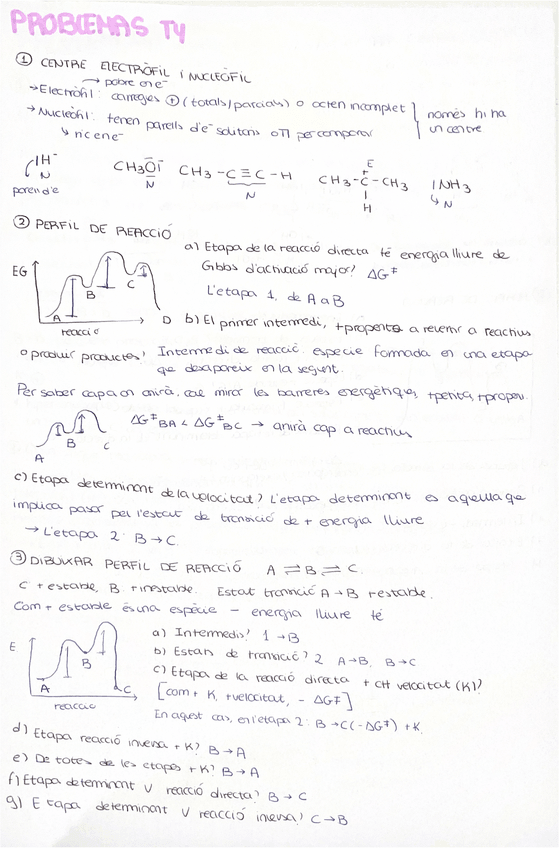 PROBLEMAS T4
① CENTRE ELECTRÒFIL I NUCLEÒFIL
→ pobre en e⁻
→ Electròfil: càrregues ⊕ (totals/parcials) o octen incomplet
→ Nucleòfil: tenen parells d'e⁻ solitaris o π per compartir
només hi ha un centre
↳ ric en e⁻
IH⁻ CH3OI⁻ CH3-C≡C-H CH3-C-CH3 INH3
E
N N N H ↳ N
parell d'e
② PERFIL DE REACCIÓ
a) Etapa de la reacció directa té energia lliure de
Gibbs d'activació major? ΔG‡
L'etapa 1, de A a B
EG A B C D
reacció
b) El primer intermedi, + propens a revertir a reactius
o produir productes? Intermedi de reacció: espècie formada en una etapa
que desapareix en la següent.
Per saber cap a on anirà, cal mirar les barreres energètiques, + petita, + propens.
A B C
ΔG‡BA < ΔG‡BC → anirà cap a reactius
c) Etapa determinant de la velocitat? L'etapa determinant és aquella que
implica passar pel l'estat de transició de + energia lliure
→ L'etapa 2: B → C.
③ DIBUIXAR PERFIL DE REACCIÓ A ⇌ B ⇌ C.
C + estable, B + inestable. Estat transició A → B + estable.
Com + estable és una espècie - energia lliure té
E A B C
reacció
a) Intermedis? 1 → B
b) Estats de transició? 2 A→B, B→C
c) Etapa de la reacció directa + ct velocitat (K)?
[com + K, + velocitat, - ΔG‡]
En aquest cas, en l'etapa 2: B → C (-ΔG‡) + K.
d) Etapa reacció inversa + K? B → A
e) De totes de les etapes + K? B → A
f) Etapa determinant V reacció directa? B → C
g) Etapa determinant V reacció inversa? C → B